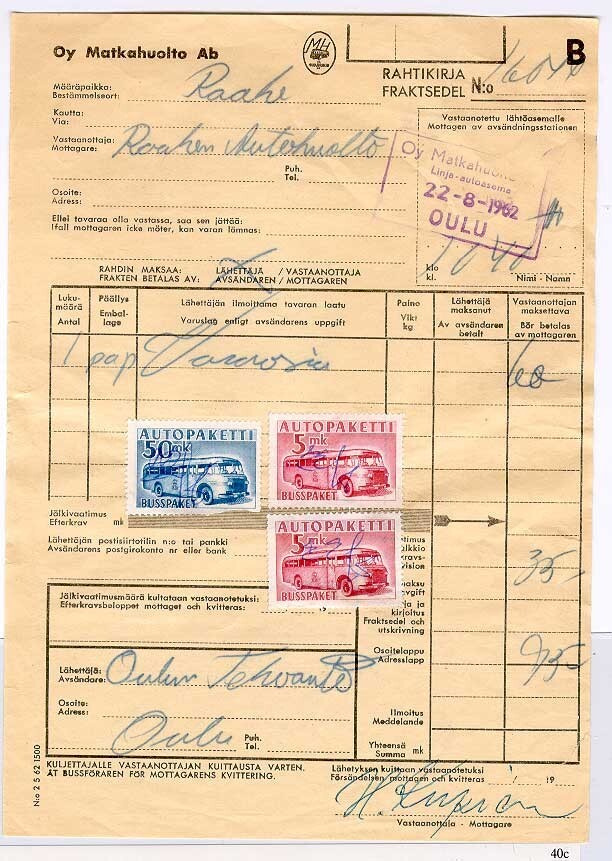 Oy Matkahuolto Ab
MH
B
RAHTIKIRJA
FRAKTSEDEL N:o
Määräpaikka:
Bestämmelseort:
Raahe
Kautta:
Via:
Vastaanottaja:
Mottagare:
Raahen Autohuolto
Puh.
Tel.
Osoite:
Adress:
Ellei tavaraa olla vastassa, saa sen jättää:
Ifall mottagaren icke möter, kan varan lämnas:
Vastaanotettu lähtöasemalle
Mottagen av avsändningsstationen
Oy Matkahuolto
Linja-autoasema
22-8-1962
OULU
klo
kl.
1040
Nimi - Namn
RAHDIN MAKSAA: LÄHETTÄJÄ / VASTAANOTTAJA
FRAKTEN BETALAS AV: AVSÄNDAREN / MOTTAGAREN
Luku-
määrä
Antal
Päällys
Embal-
lage
Lähettäjän ilmoittama tavaran laatu
Varuslag enligt avsändarens uppgift
Paino
Vikt
kg
Lähettäjä
maksanut
Av avsändaren
betalt
Vastaanottajan
maksettava
Bör betalas
av mottagaren
1 pap
60
AUTOPAKETTI
50 mk
BUSSPAKET
AUTOPAKETTI
5 mk
BUSSPAKET
AUTOPAKETTI
5 mk
BUSSPAKET
Jälkivaatimus
Efterkrav mk
Lähettäjän postisiirtotilin n:o tai pankki
Avsändarens postgirokonto nr eller bank
35
Jälkivaatimusmäärä kultataan vastaanotetuksi:
Efterkravsbeloppet mottaget och kvitteras:
19
kirjoitus
Fraktsedel och
utskrivning
Osoitelappu
Adresslapp
935
Ilmoitus
Meddelande
Yhteensä
Summa mk
Lähettäjä:
Avsändare:
Osoite:
Adress:
Oulu
Puh.
Tel.
KULJETTAJALLE VASTAANOTTAJAN KUITTAUSTA VARTEN.
ÅT BUSSFÖRAREN FÖR MOTTAGARENS KVITTERING.
Lähetyksen kuittaan vastaanotetuksi
Försändelsen mottagen och kvitteras / 19
Vastaanottaja - Mottagare
N:o 2 5 62 1500
40c